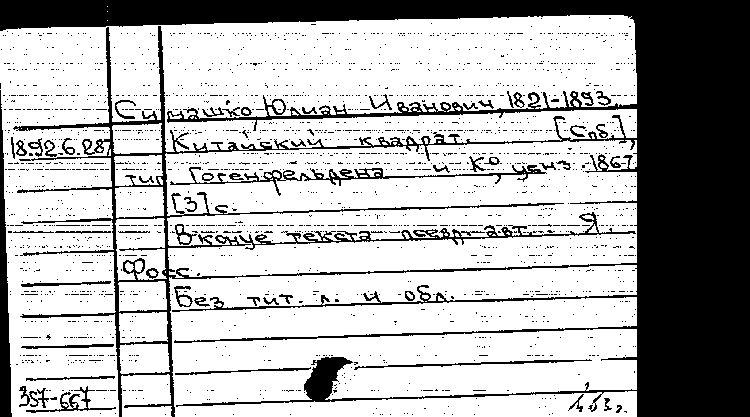 Симашко, Юлиан Иванович, 1821-1893.
18.92.6.287
Китайский квадрат. [Спб.],
тип. Гогенфельдена и К°, ценз. 1867
[3] с.
В конце текста псевд. авт.: Я.
Фосс.
Без тит. л. и обл.
357-667